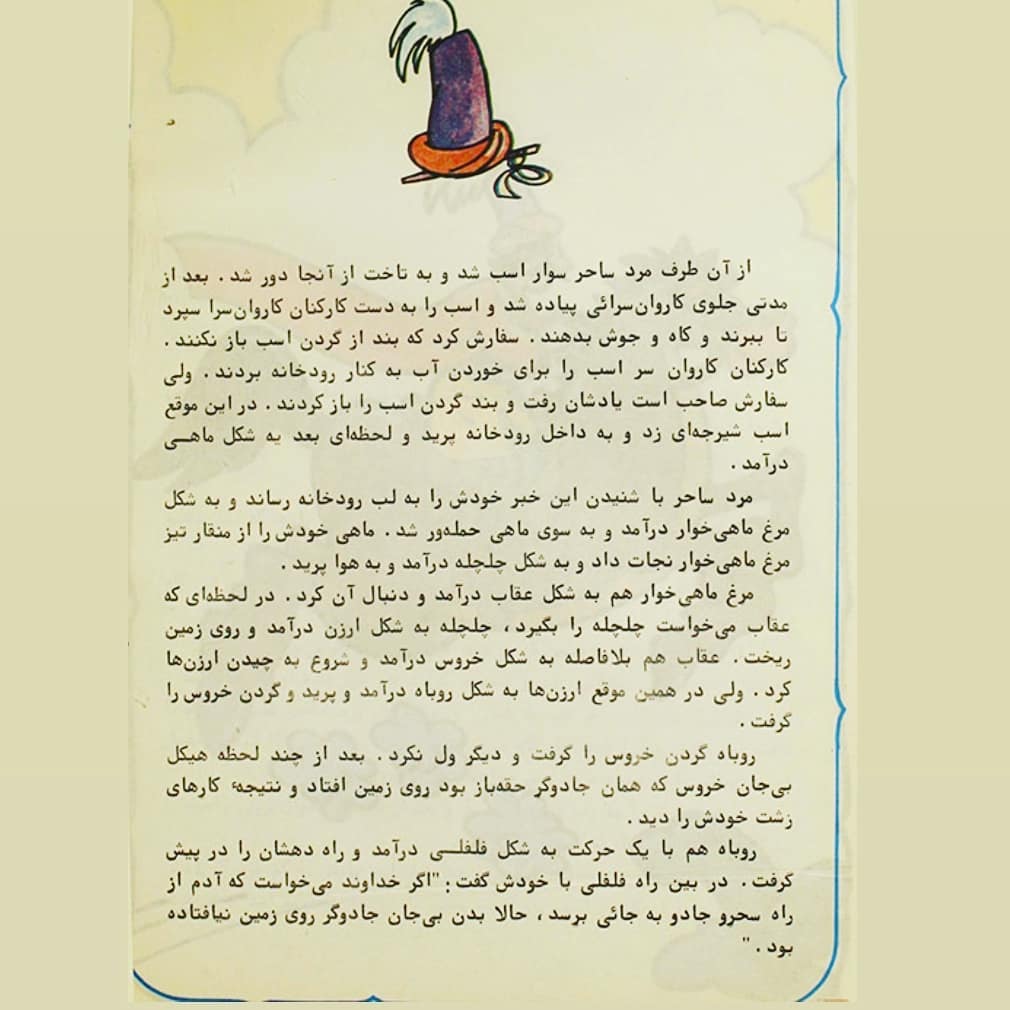 از آن طرف مرد ساحر سوار اسب شد و به تاخت از آنجا دور شد . بعد از
مدتی جلوی کاروان‌سرائی پیاده شد و اسب را به دست کارکنان کاروان‌سرا سپرد
تا ببرند و کاه و جوش بدهند . سفارش کرد که بند از گردن اسب باز نکنند .
کارکنان کاروان سر اسب را برای خوردن آب به کنار رودخانه بردند . ولی
سفارش صاحب است یادشان رفت و بند گردن اسب را باز کردند . در این موقع
اسب شیرجه‌ای زد و به داخل رودخانه پرید و لحظه‌ای بعد به شکل ماهی
درآمد .
مرد ساحر با شنیدن این خبر خودش را به لب رودخانه رساند و به شکل
مرغ ماهی‌خوار درآمد و به سوی ماهی حمله‌ور شد . ماهی خودش را از منقار تیز
مرغ ماهی‌خوار نجات داد و به شکل چلچله درآمد و به هوا پرید .
مرغ ماهی‌خوار هم به شکل عقاب درآمد و دنبال آن کرد . در لحظه‌ای که
عقاب می‌خواست چلچله را بگیرد ، چلچله به شکل ارزن درآمد و روی زمین
ریخت . عقاب هم بلافاصله به شکل خروس درآمد و شروع به چیدن ارزن‌ها
کرد . ولی در همین موقع ارزن‌ها به شکل روباه درآمد و پرید و گردن خروس را
گرفت .
روباه گردن خروس را گرفت و دیگر ول نکرد . بعد از چند لحظه هیکل
بی‌جان خروس که همان جادوگر حقه‌باز بود روی زمین افتاد و نتیجهٔ کارهای
زشت خودش را دید .
روباه هم با یک حرکت به شکل فلفلی درآمد و راه دهشان را در پیش
گرفت . در بین راه فلفلی با خودش گفت : "اگر خداوند می‌خواست که آدم از
راه سحرو جادو به جائی برسد ، حالا بدن بی‌جان جادوگر روی زمین نیافتاده
بود . "